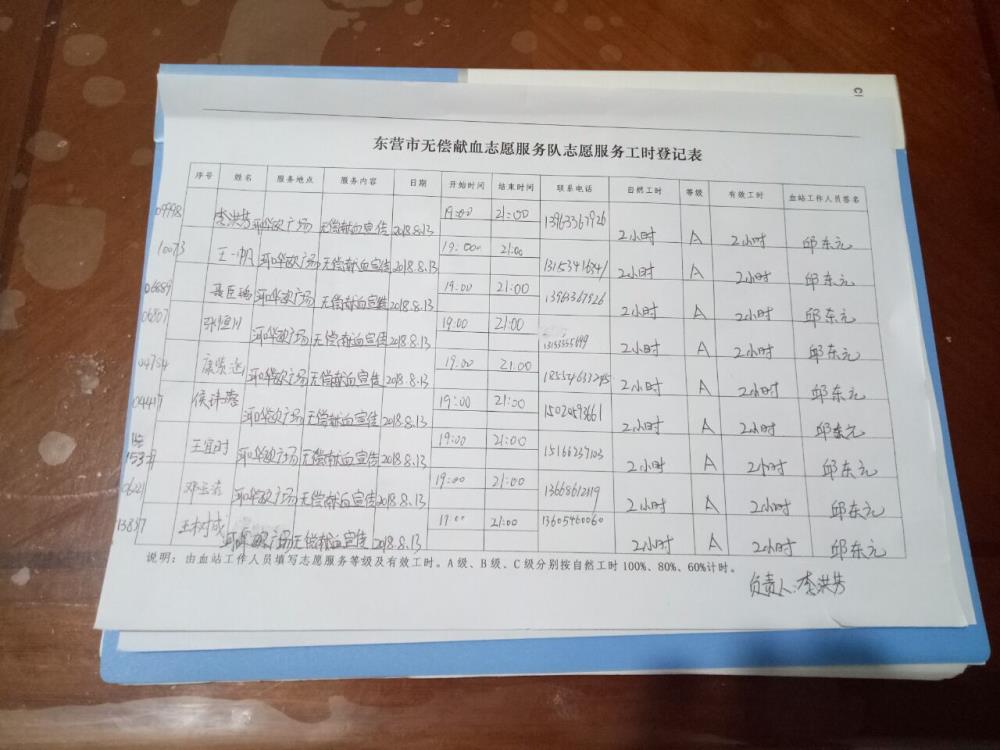 东营市无偿献血志愿服务队志愿服务工时登记表
序号 姓名 服务地点 服务内容 日期 开始时间 结束时间 联系电话 自然工时 等级 有效工时 血站工作人员签名
09998 李洪芳 广场 无偿献血宣传 2018.8.13 19:00 21:00 13963367926 2小时 A 2小时 邱东元
10073 王一帆 广场 无偿献血宣传 2018.8.13 19:00 21:00 2小时 A 2小时 邱东元
06689 聂臣 广场 无偿献血宣传 2018.8.13 19:00 21:00 13963367926 2小时 A 2小时 邱东元
06807 张恒川 广场 无偿献血宣传 2018.8.13 19:00 21:00 2小时 A 2小时 邱东元
04754 广场 无偿献血宣传 2018.8.13 19:00 21:00 2小时 A 2小时 邱东元
04417 侯 广场 无偿献血宣传 2018.8.13 19:00 21:00 2小时 A 2小时 邱东元
王宜时 广场 无偿献血宣传 2018.8.13 19:00 21:00 15166237103 2小时 A 2小时 邱东元
邓 广场 无偿献血宣传 2018.8.13 19:00 21:00 13668612119 2小时 A 2小时 邱东元
13857 王树成 广场 无偿献血宣传 2018.8.13 19:00 21:00 13605460060 2小时 A 2小时 邱东元
说明：由血站工作人员填写志愿服务等级及有效工时。A级、B级、C级分别按自然工时100%、80%、60%计时。
负责人:李洪芳